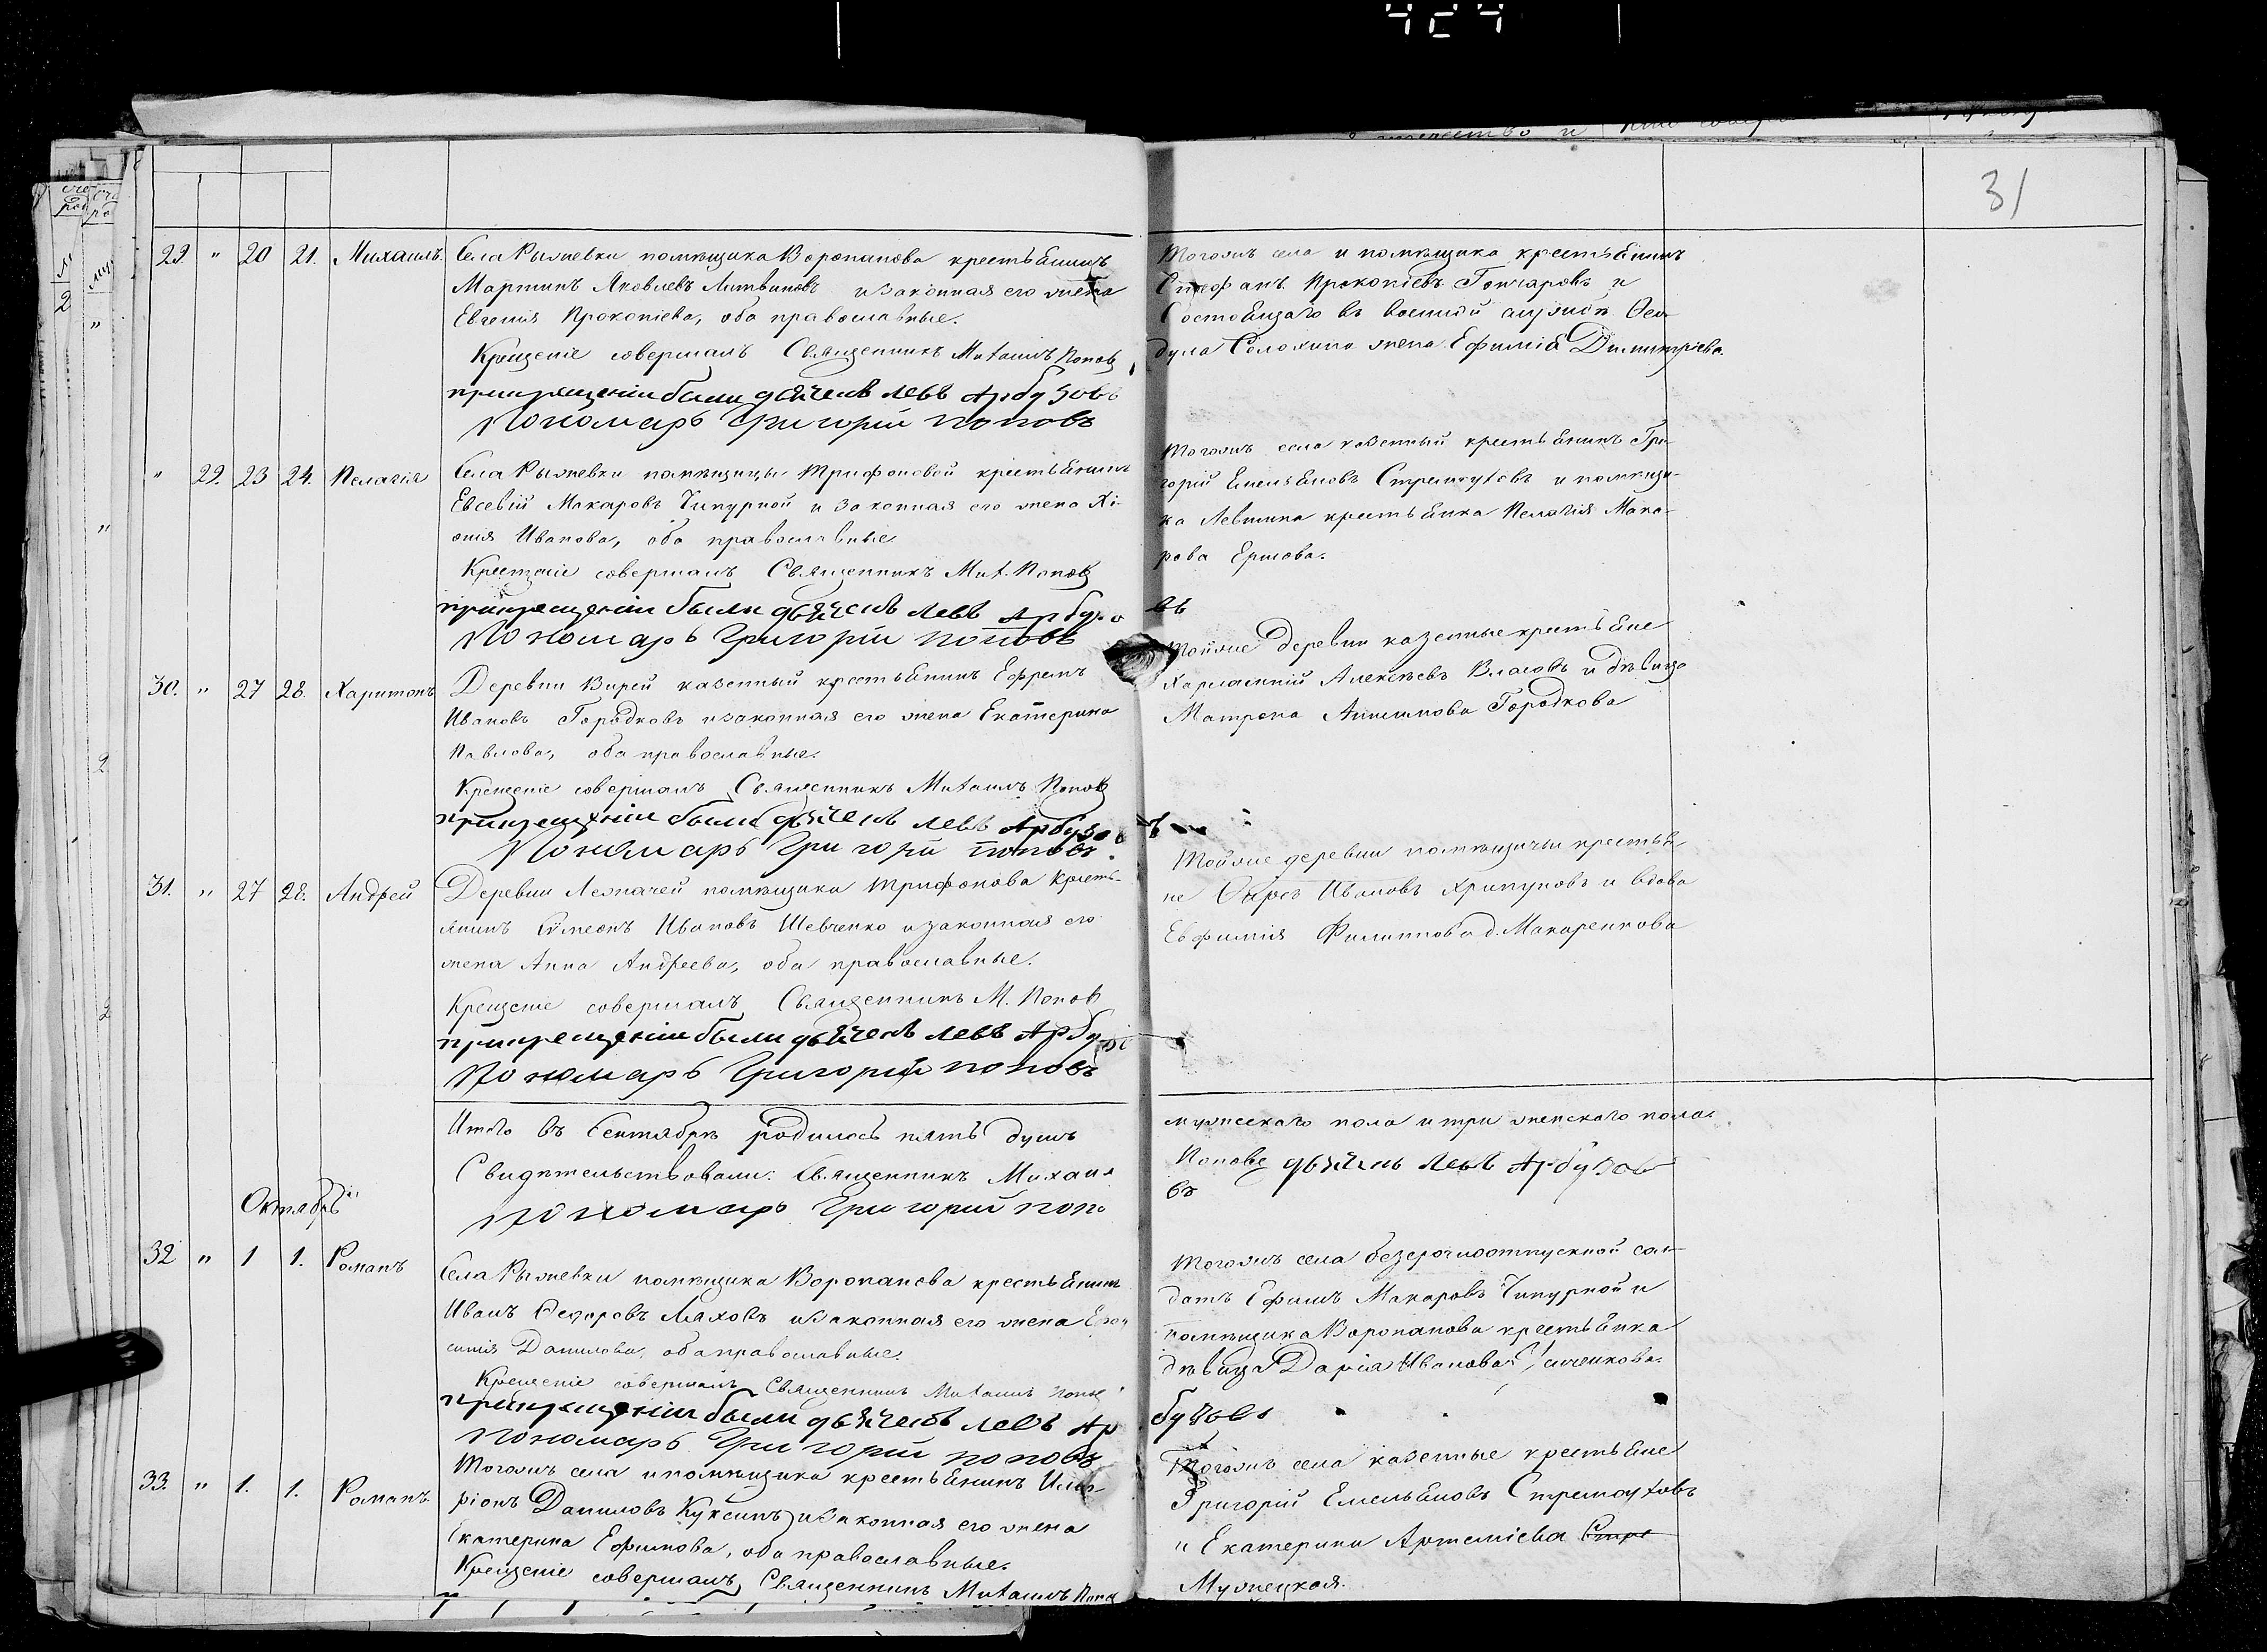 31
29. " 20 21. Михаилъ. Села Рыжевки помѣщика Воропанова крестьянинъ
Мартинъ Яковлевъ Литвиновъ и законная его жена
Евгенія Прокопіева, оба православные.
Крещеніе совершалъ Священникъ Михаилъ Попов
при крещеніи были дьячекъ Левъ Арбузовъ
Пономарь Григорій Поповъ
Тогожъ села и помѣщика крестьянинъ
Стефанъ Прокопіевъ Гончаровъ и
Состоящаго въ военной службѣ Ѳео-
дула Солохина жена Ефимія Димитріева.
" 29. 23 24. Пелагія Села Рыжевки помѣщицы Трифоновой крестьянинъ
Евсевій Макаровъ Чипурной и законная его жена Хі-
онія Иванова, оба православные.
Крещеніе совершалъ Священникъ Мих. Попов
при крещеніи были дьячекъ Левъ Арбузо
въ
Пономарь Григорій Поповъ
Тогожъ села казенный крестьянинъ Гри-
горій Емельяновъ Стремоуховъ и помѣщи-
ка Левшина крестьянка Пелагія Мака-
рова Ершова.
30. " 27 28. Харитонъ Деревни Вирей казенный крестьянинъ Ефремъ
Ивановъ Городковъ и законная его жена Екатерина
Павлова, оба православные.
Крещеніе совершалъ Священникъ Михаилъ Попов
при крещеніи были дьячекъ Левъ Арбузовъ
Пономарь Григори Поповъ.
Тойже деревни казенные крестьяне
Харлампій Алексѣевъ Власовъ и дѣвица
Матрона Городкова
31. " 27 28. Андрей Деревни Лежачей помѣщика Трифонова кресть-
янинъ Симеонъ Ивановъ Шевченко и законная его
жена Анна Андреева, оба православные.
Крещеніе совершалъ Священникъ М. Попов
при крещеніи были дьячекъ Левъ Арбузо
Пономарь Григорій Поповъ
Тойже деревни помѣщичьи крестья-
не Ивановъ Хрипуновъ и вдова
Евфимія Филиппова д. Макаренкова
Итого въ Сентябрѣ родилось пять душъ
мужескаго пола и три женскаго пола.
Свидѣтельствовали: Священникъ Михаил
Попове дьячекъ Левъ Арбузов
Пономарь Григорий Попо
въ
Октябрь
32 " 1 1. Романъ Села Рыжевки помѣщика Воропанова крестьянинъ
Иванъ Ѳедоровъ Ляховъ и законная его жена
Данилова, оба православные.
Крещеніе совершалъ Священникъ Михаилъ Попов
при крещеніи были дьячекъ Левъ Ар
бузовъ
Пономарь Григорій Поповъ
Тогожъ села безсрочноотпускной сол-
датъ Ефимъ Макаровъ Чипурной и
помѣщика Воропанова крестьянка
дѣвица Дарія Иванова
33. " 1. 1. Романъ. Тогожъ села и помѣщика крестьянинъ Илла-
ріонъ Даниловъ Куксинъ и законная его жена
Екатерина Ефимова, оба православные.
Крещеніе совершалъ Священникъ Михаилъ Попов
Тогожъ села казенные крестьяне
Григорій Емельяновъ Стремоуховъ
и Екатерина Артеміева Стре
Мужецкая.